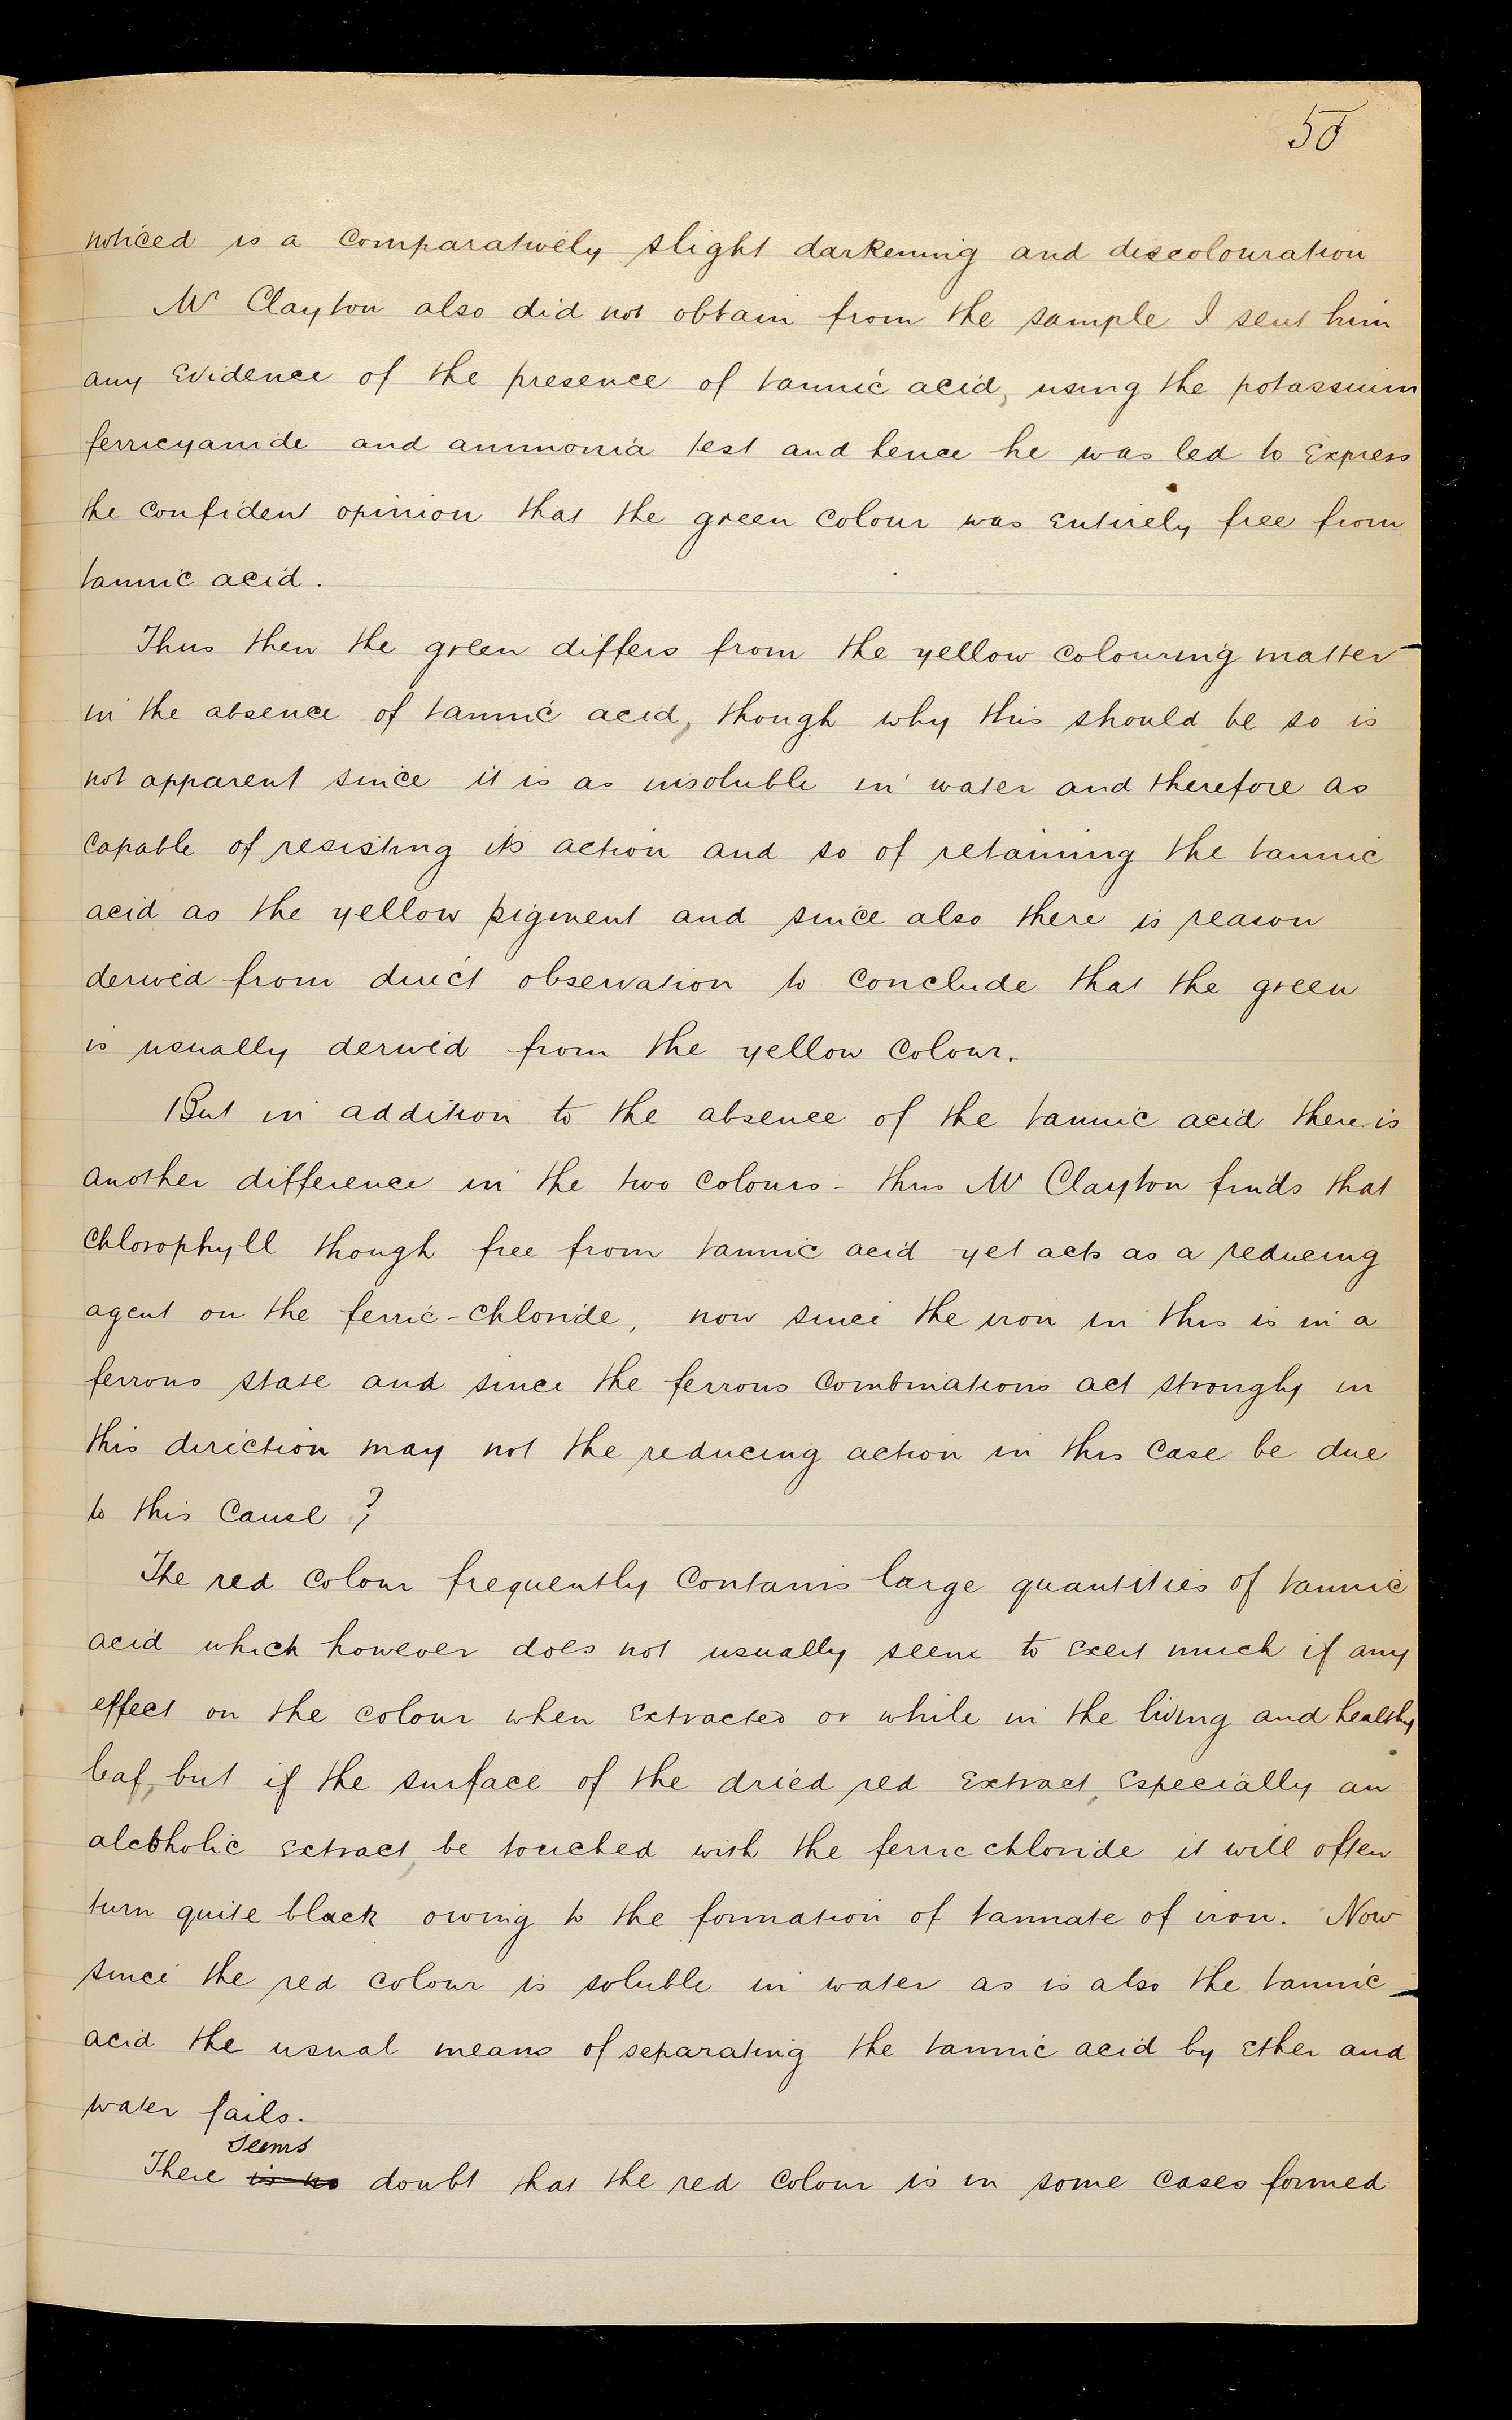 50
noticed is a comparatively slight darkening and discolouration
Mr Clayton also did not obtain from the sample I sent him
any evidence of the presence of tannic acid, using the potassium
ferricyanide and ammonia test and hence he was led to express
the confident opinion that the green colour was entirely free from
tannic acid.
Thus then the green differs from the yellow colouring matter
in the absence of tannic acid, though why this should be so is
not apparent since it is as insoluble in water and therefore as
capable of resisting its action and so of retaining the tannic
acid as the yellow pigment and since also there is reason
derived from direct observation to conclude that the green
is usually derived from the yellow colour.
But in addition to the absence of the tannic acid there is
another difference in the two colours - thus Mr Clayton finds that
chlorophyll though free from tannic acid yet acts as a reducing
agent on the ferric-chloride, now since the iron in this is in a
ferrous state and since the ferrous combinations act strongly in
this direction may not the reducing action in this case be due
to this cause?
The red colour frequently contains large quantities of tannic
acid which however does not usually seem to exert much if any
effect on the colour when extracted or while in the living and healthy
leaf, but if the surface of the dried red extract, especially an
alcoholic extract, be touched with the ferric chloride it will often
turn quite black owing to the formation of tannate of iron. Now
since the red colour is soluble in water as is also the tannic
acid the usual means of separating the tannic acid by ether and
water fails.
seems
There is no doubt that the red colour is in some cases formed